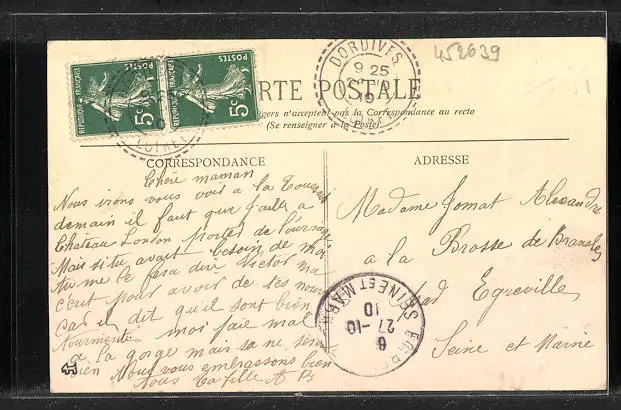 452639
POSTES
REPUBLIQUE FRANÇAISE
5c
POSTES
REPUBLIQUE FRANÇAISE
5c
DORDIVES
9 25
LOIRET
CARTE POSTALE
n'acceptent pas la Correspondance au recto
(Se renseigner à la Poste)
CORRESPONDANCE
Chère maman
Nous irons vous voir a la Toussaint
demain il faut que j'aille a
Chateau Landon porter de l'ouvrage
Mais si tu avait besoin de moi
tu me le fera dire Victor ma
écrit pour avoir de tes nouv
car il dit qu'il sont bien
tourmenter moi j'ai mal
a la gorge mais sa ne sera
rien Nous vous embrassons bien
Tous ta fille A B
ADRESSE
Madame Jomat Alexandre
a la Brosse de Bransles
par Egreville
Seine et Marne
SEINE ET MARNE
6
27-10
10